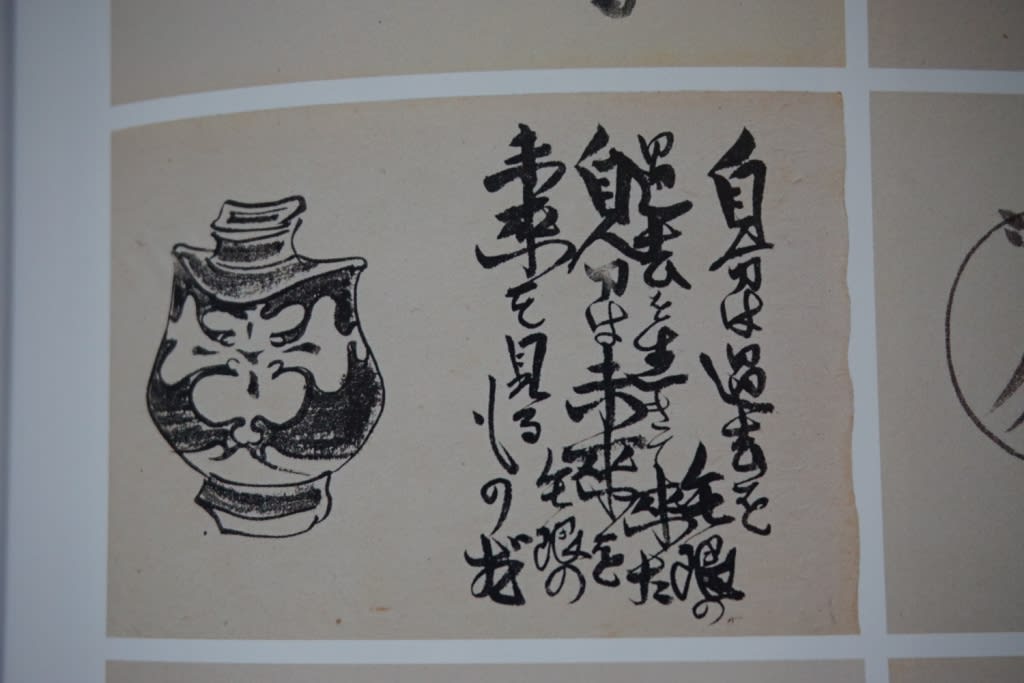 自分は過去を
無限の
過去を生きて来た
自分は未来を
無限の
未来を見るものだ